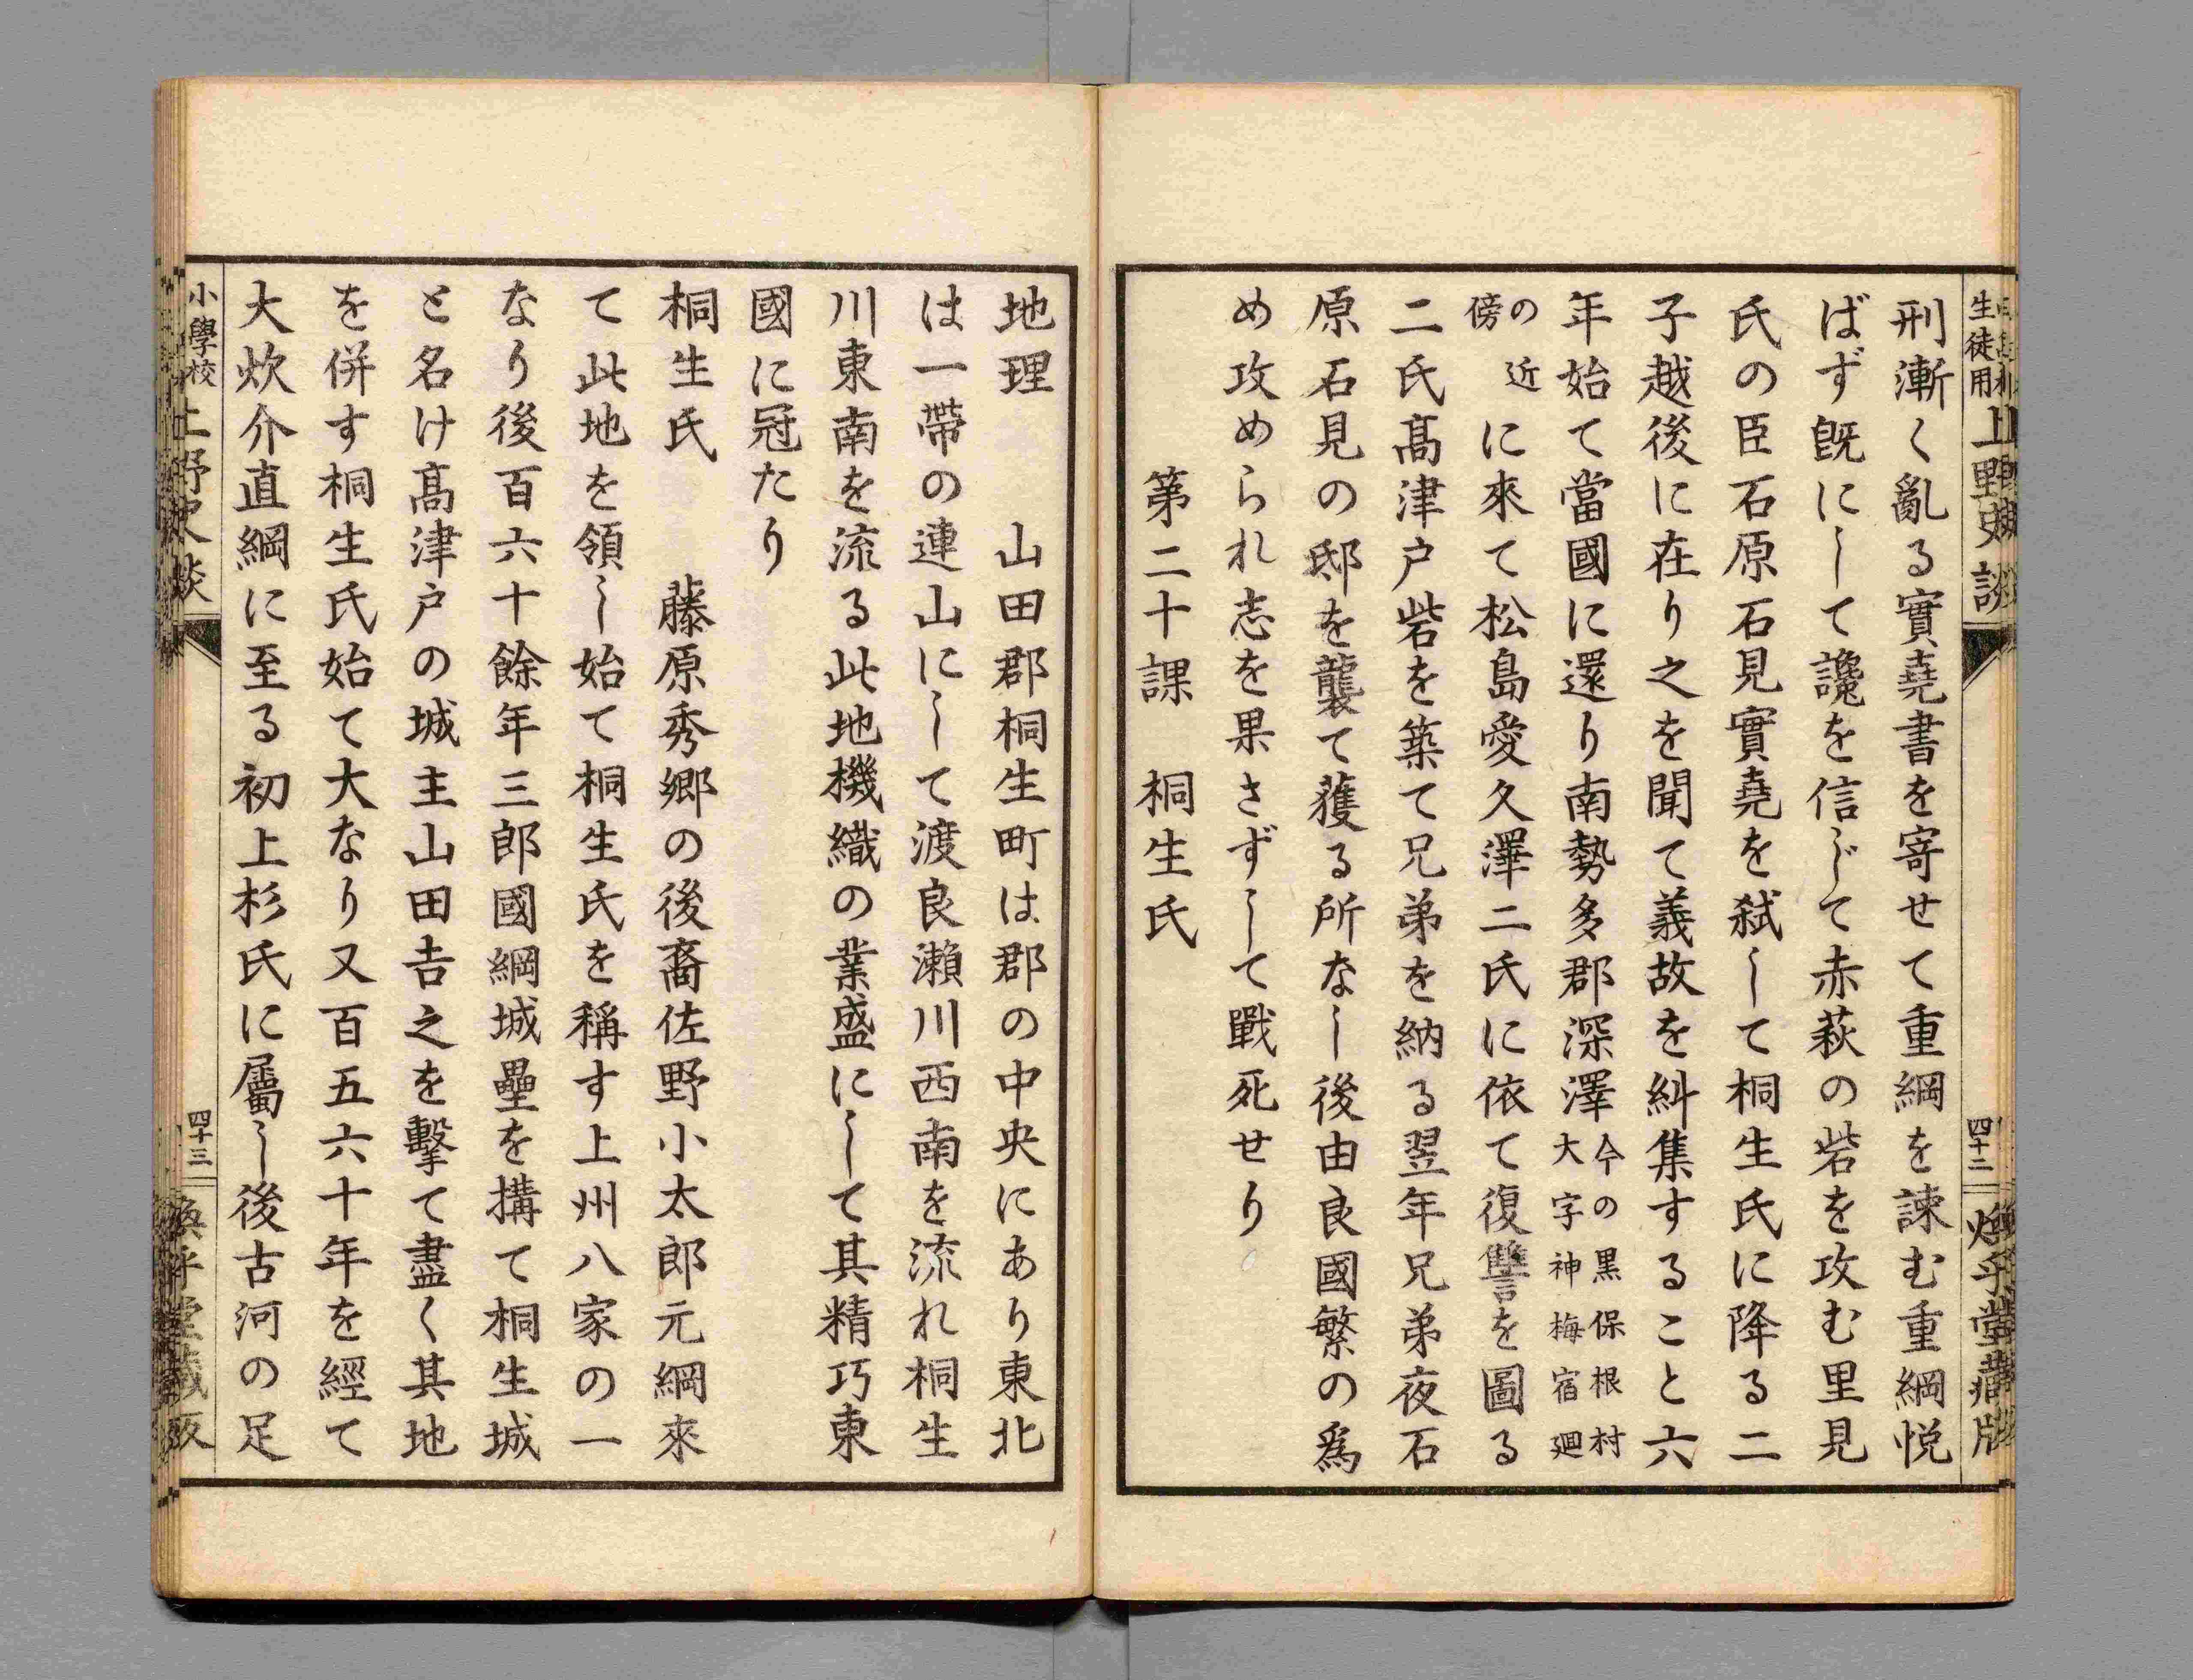 刑漸く亂る實堯書を寄せて重綱を諌む重綱悦
ばず旣にして讒を信じて赤萩の砦を攻む里見
氏の臣石原石見實堯を弑して桐生氏に降る二
子越後に在り之を聞て義故を糾集すること六
年始て當國に還り南勢多郡深澤今の黒保根村大字神梅宿廻
の近傍に來て松島愛久澤二氏に依て復讐を圖る
二氏髙津戸砦を築て兄弟を納る翌年兄弟夜石
原石見の邸を襲て獲る所なし後由良國繁の爲
め攻められ志を果さずして戰死せり。
第二十課 桐生氏
地理 山田郡桐生町は郡の中央にあり東北
は一帶の連山にして渡良瀨川西南を流れ桐生
川東南を流る此地機織の業盛にして其精巧東
國に冠たり
桐生氏 藤原秀郷の後裔佐野小太郎元綱來
て此地を領し始て桐生氏を稱す上州八家の一
なり後百六十餘年三郎國綱城壘を搆て桐生城
と名け髙津戸の城主山田𠮷之を擊て盡く其地
を併す桐生氏始て大なり又百五六十年を經て
大炊介直綱に至る初上杉氏に屬し後古河の足
生徒用 上野史談
四十二
小學校 上野史談
四十三
煥乎堂藏版